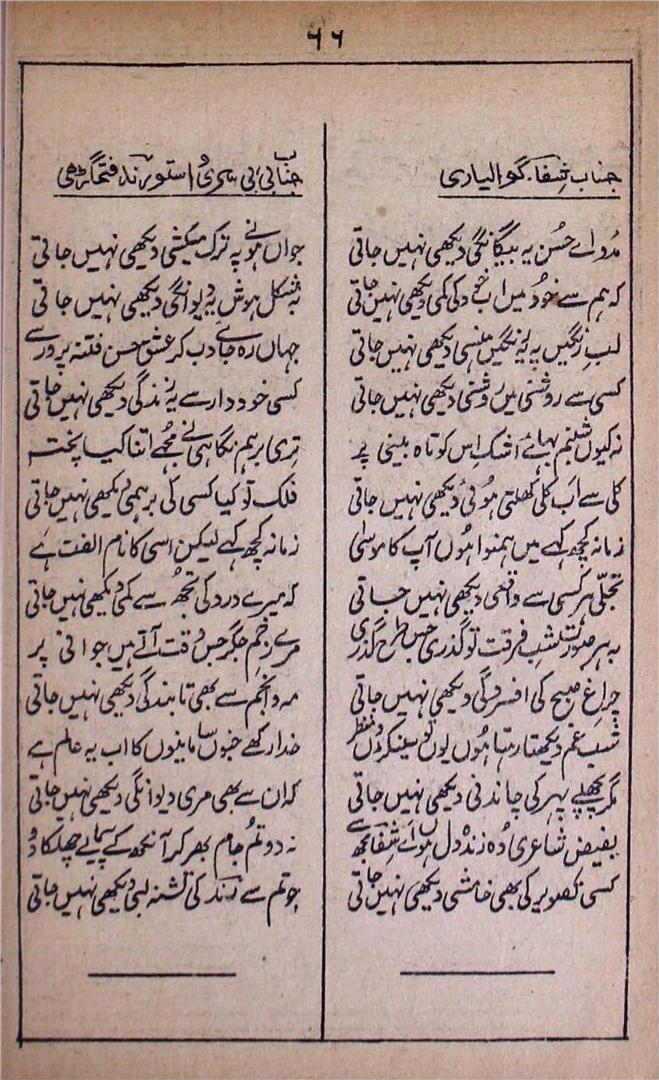 ۶۶
جناب شفا۔ گوالیاری
مدد اے حسن یہ بیگانگی دیکھی نہیں جاتی
کہ ہم سے خود میں اب دکی کمی دیکھی نہیں جاتی
لب رنگیں پہ یہ رنگیں ہنسی دیکھی نہیں جاتی
کسی سے روشنی میں روشنی دیکھی نہیں جاتی
نہ کیوں شبنم بہائے اشک اس کوتاہ بینی پر
کلی سے اب کلی کھلتی ہوئی دیکھی نہیں جاتی
زمانہ کچھ کہے میں ہمنوا ہوں آپ کا موسیٰ
تجلّی ہر کسی سے واقعی دیکھی نہیں جاتی
بہ ہر صورت شب فرقت تو گذری جس طرح گذری
چراغ صبح کی افسردگی دیکھی نہیں جاتی
شب غم دیکھتا رہتا ہوں یوں تو سینکڑوں منظر
مگر پچھلے پہر کی چاندنی دیکھی نہیں جاتی
بفیض شاعری وہ زندہ دل ہوں اے شفا مجھ سے
کسی تصویر کی بھی خامشی دیکھی نہیں جاتی
جناب بی بی سری واستو رند فتحگڑھی
جواں ہونے پہ ترک میکشی دیکھی نہیں جاتی
بہ شکل ہوش یہ دیوانگی دیکھی نہیں جاتی
جہاں رہ جائے دب کر عشق حسن فتنہ پرور سے
کسی خوددار سے یہ زندگی دیکھی نہیں جاتی
تری برہم نگاہی نے مجھے اتنا کیا پختہ
فلک تو کیا کسی کی برہمی دیکھی نہیں جاتی
زمانہ کچھ کہے لیکن اسی کا نام الفت ہے
کہ میرے درد کی تجھ سے کمی دیکھی نہیں جاتی
مرے زخم جگر جس وقت آتے ہیں جوانی پر
مہ و انجم سے بھی تابندگی دیکھی نہیں جاتی
خدا رکھے جنوں سامانیوں کا اب یہ عالم ہے
کہ ان سے بھی مری دیوانگی دیکھی نہیں جاتی
نہ دو تم جام بھر کر آنکھ کے پیمانے چھلکا دو
جو تم سے رند کی تشنہ لبی دیکھی نہیں جاتی